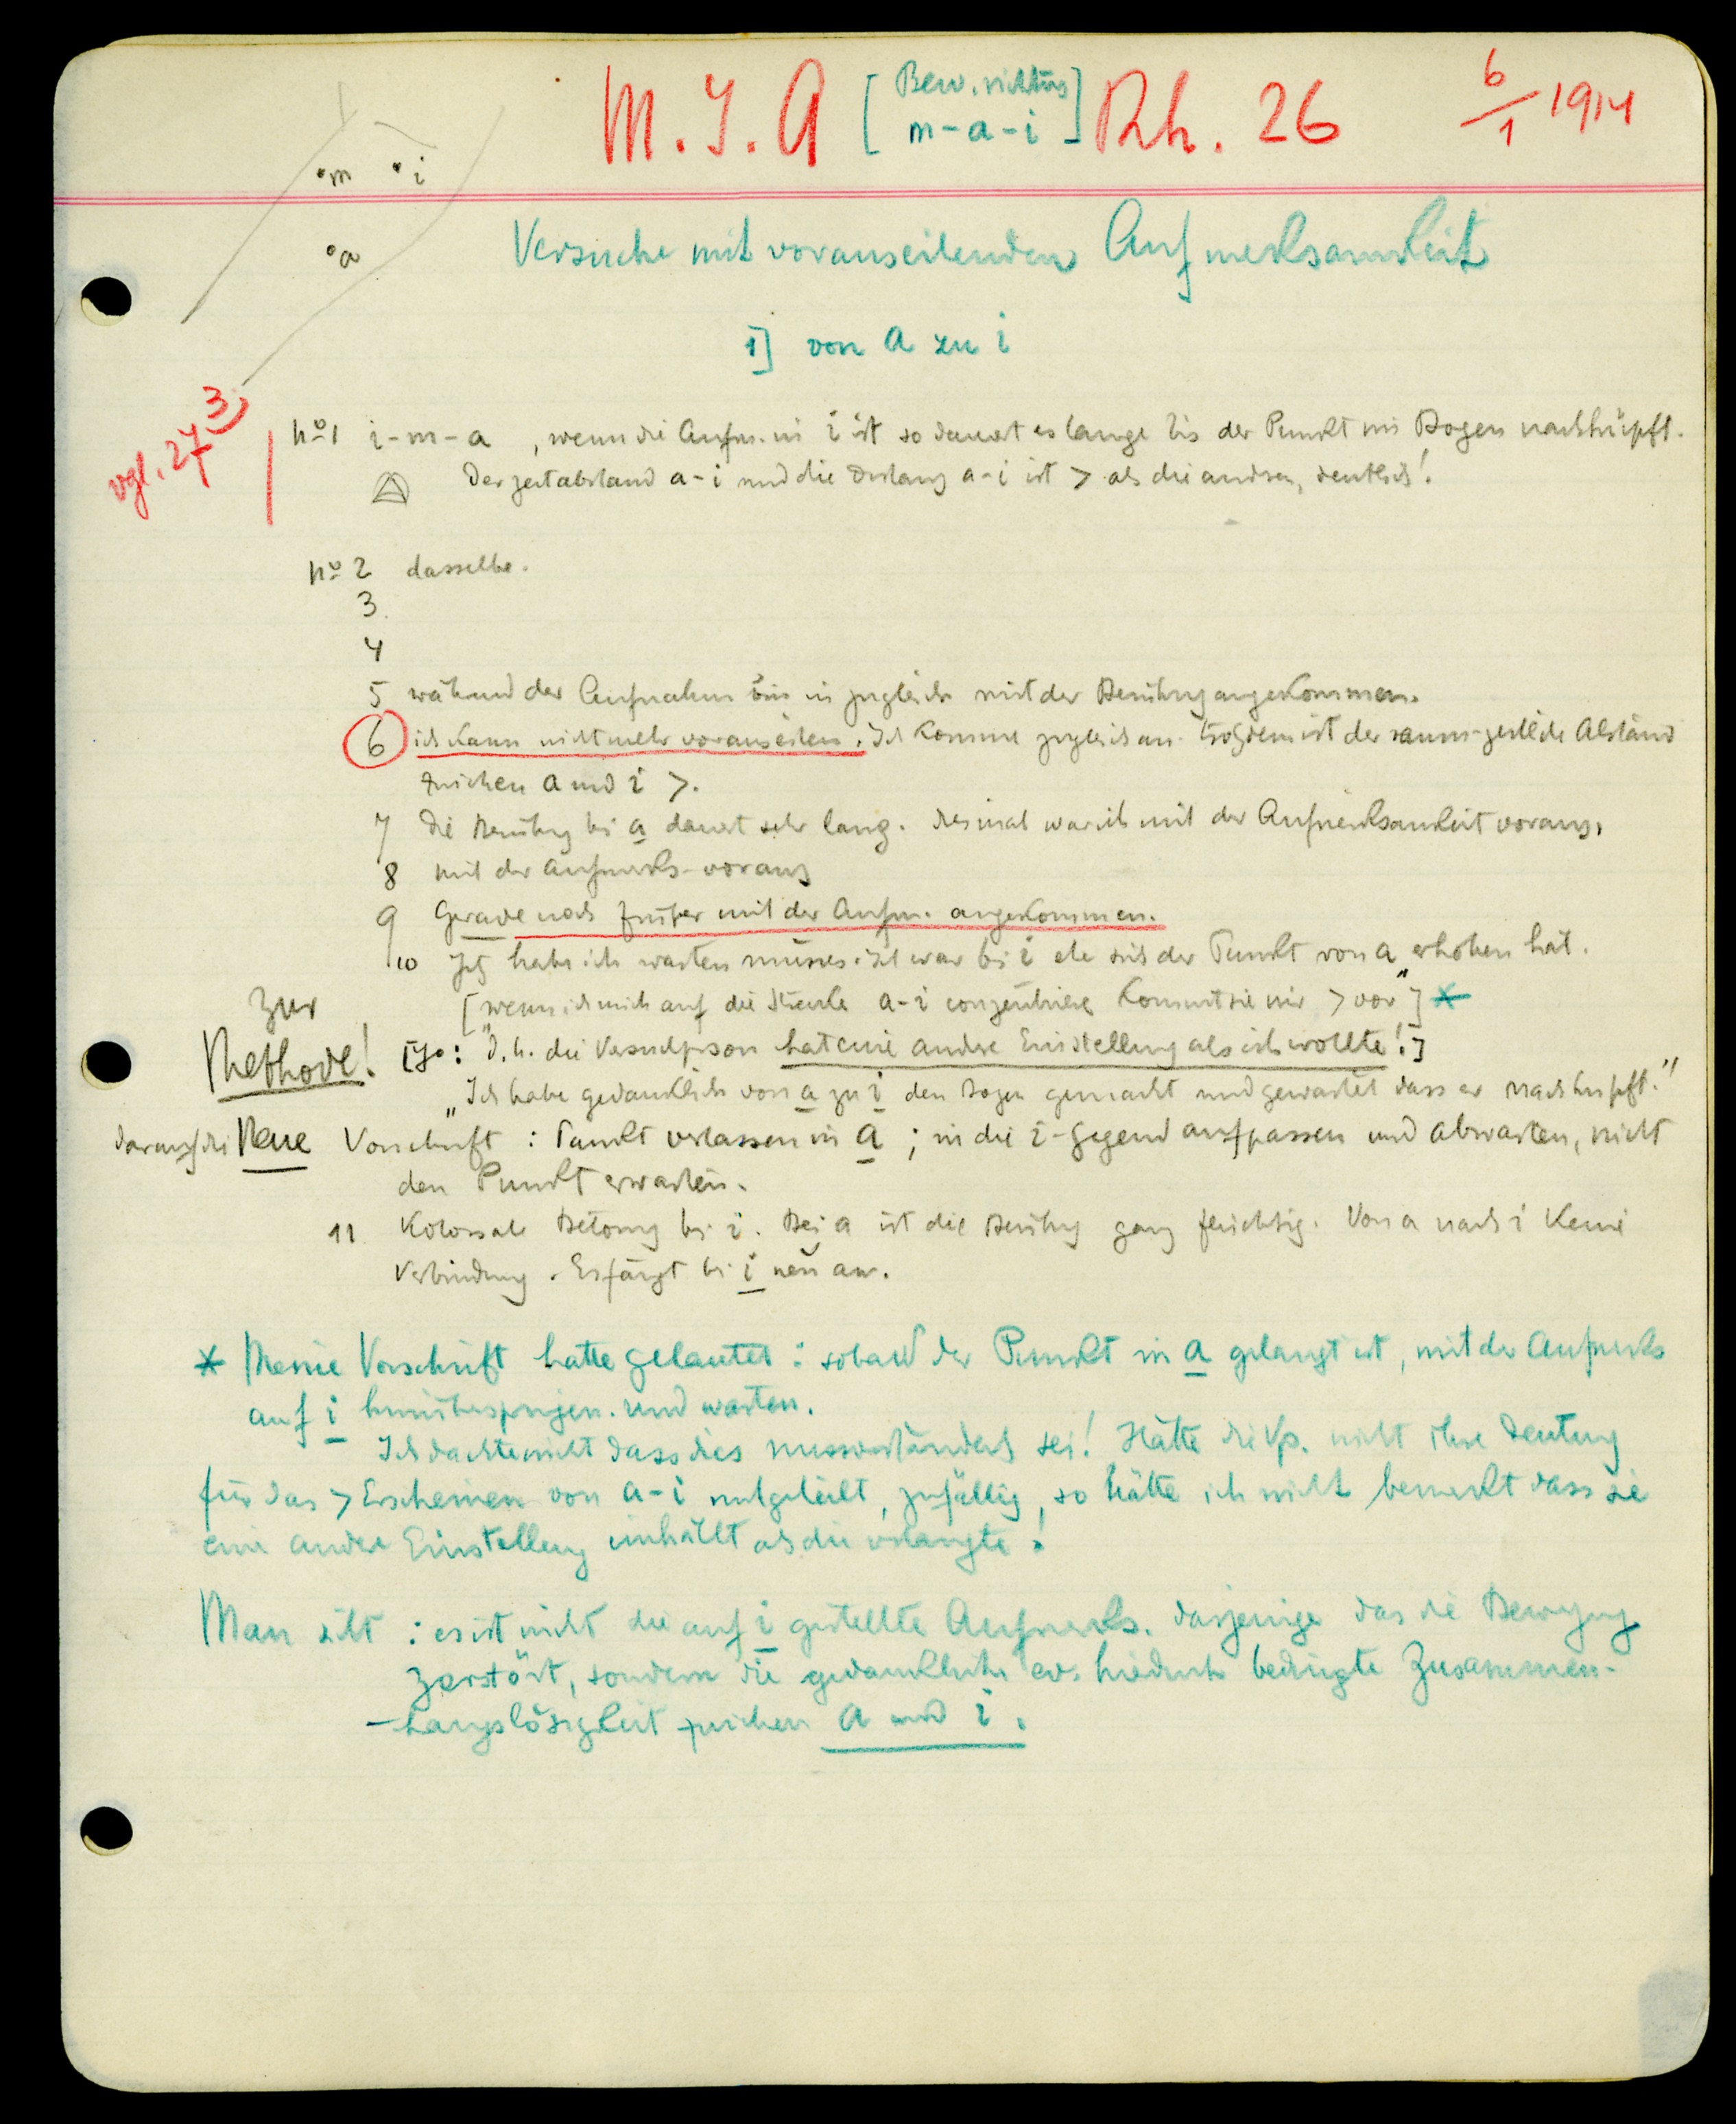 M. I. A [Bew. richtung m-a-i] Rh. 26 6/1 1914
m i
a
Versuche mit vorauseilender Aufmerksamkeit
1] von a zu i
vgl. 27 3)
No 1 i-m-a , wenn die Aufm. in i ist so dauert es lange bis der Punkt im Bogen nachhüpft.
Der Zeitabstand a-i und die Distanz a-i ist > als die andren, deutlich!
No 2 dasselbe.
3
4
5 während der Aufnahme bin ich zugleich mit der Berührg angekommen.
6 ich kann nicht mehr vorauseilen. Ich komme zugleich an. Trotzdem ist der raum-zeitliche Abstand
zwischen a und i >.
7 Die Berührg bei a dauert sehr lang. Diesmal war ich mit der Aufmerksamkeit voraus,
8 mit der Aufmerks. voraus
9 Gerade noch früher mit der Aufm. angekommen.
10 Jetzt habe ich warten müssen. Ich war bei i ehe sich der Punkt von a erhoben hat.
["wenn ich mich auf die Strecke a-i conzentriere kommt sie mir > vor"] *
zur
Methode! [Jo: d.h. die Versuchsperson hat eine andre Einstellung als ich wollte!]
„Ich habe gedanklich von a zu i den Bogen gemacht und gewartet dass er nachhüpft."
darauf die Neue Vorschrift : Punkt verlassen in a ; in die i-Gegend aufpassen und abwarten, nicht
den Punkt erwarten.
11 Kolossale Betong bei i. Bei a ist die Berührg ganz flüchtig. Von a nach i keine
Verbindung. Es fängt bei i neu an.
* Meine Vorschrift hatte gelautet : sobald der Punkt in a gelangt ist, mit der Aufmerks
auf i hinüberspringen. und warten.
Ich dachte nicht dass dies missverständlich sei! Hätte die Vp. nicht ihre Deutung
für das > Erscheinen von a-i mitgeteilt, zufällig, so hätte ich nicht bemerkt dass sie
eine andere Einstellung einhällt als die verlangte!
Man sieht : es ist nicht die auf i gestellte Aufmerks. dasjenige das die Bewegung
zerstört, sondern die gedankliche ev. hiedurch bedingte Zusammen-
-hangslösigkeit zwischen a und i.